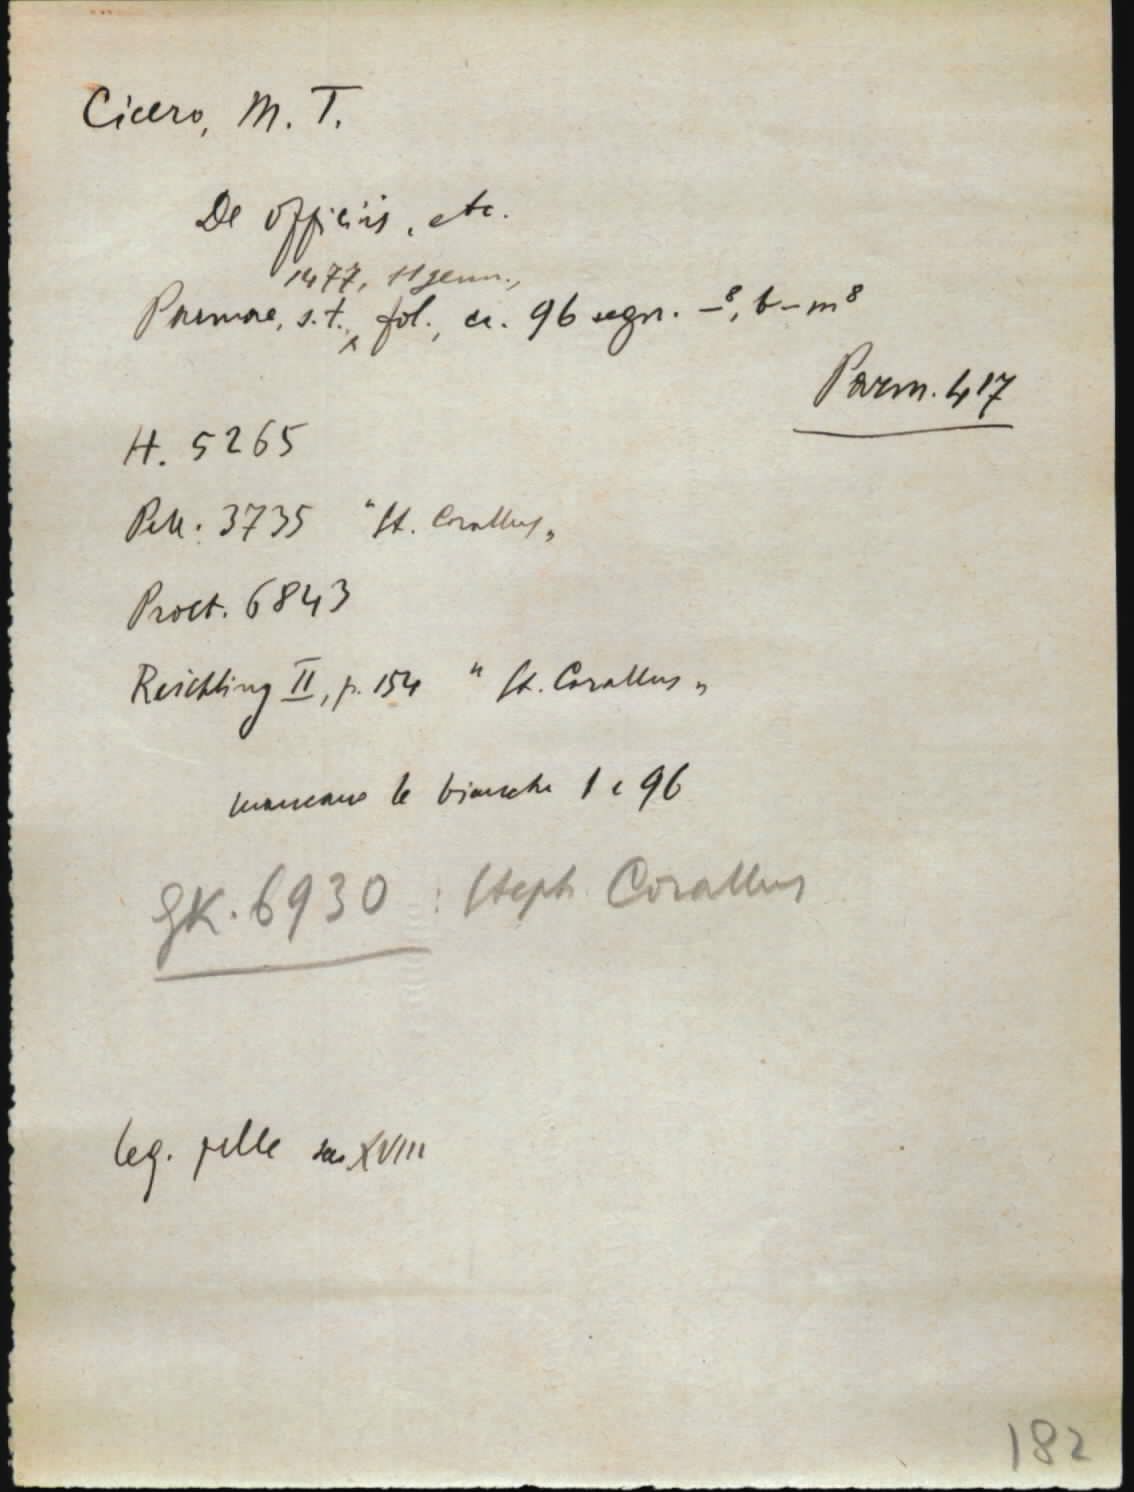 Cicero, M. T.
De officiis, etc.
1477, 11 genn.,
Parmae, s.t., fol., cc. 96 segn. –⁸, b–m⁸
Parm. 417
H. 5265
Pell. 3735 "St. Corallus"
Proct. 6843
Reichling II, p. 154 "St. Corallus"
mancano le bianche 1 e 96
GK. 6930 : Steph. Corallus
leg. pelle sec XVIII
182